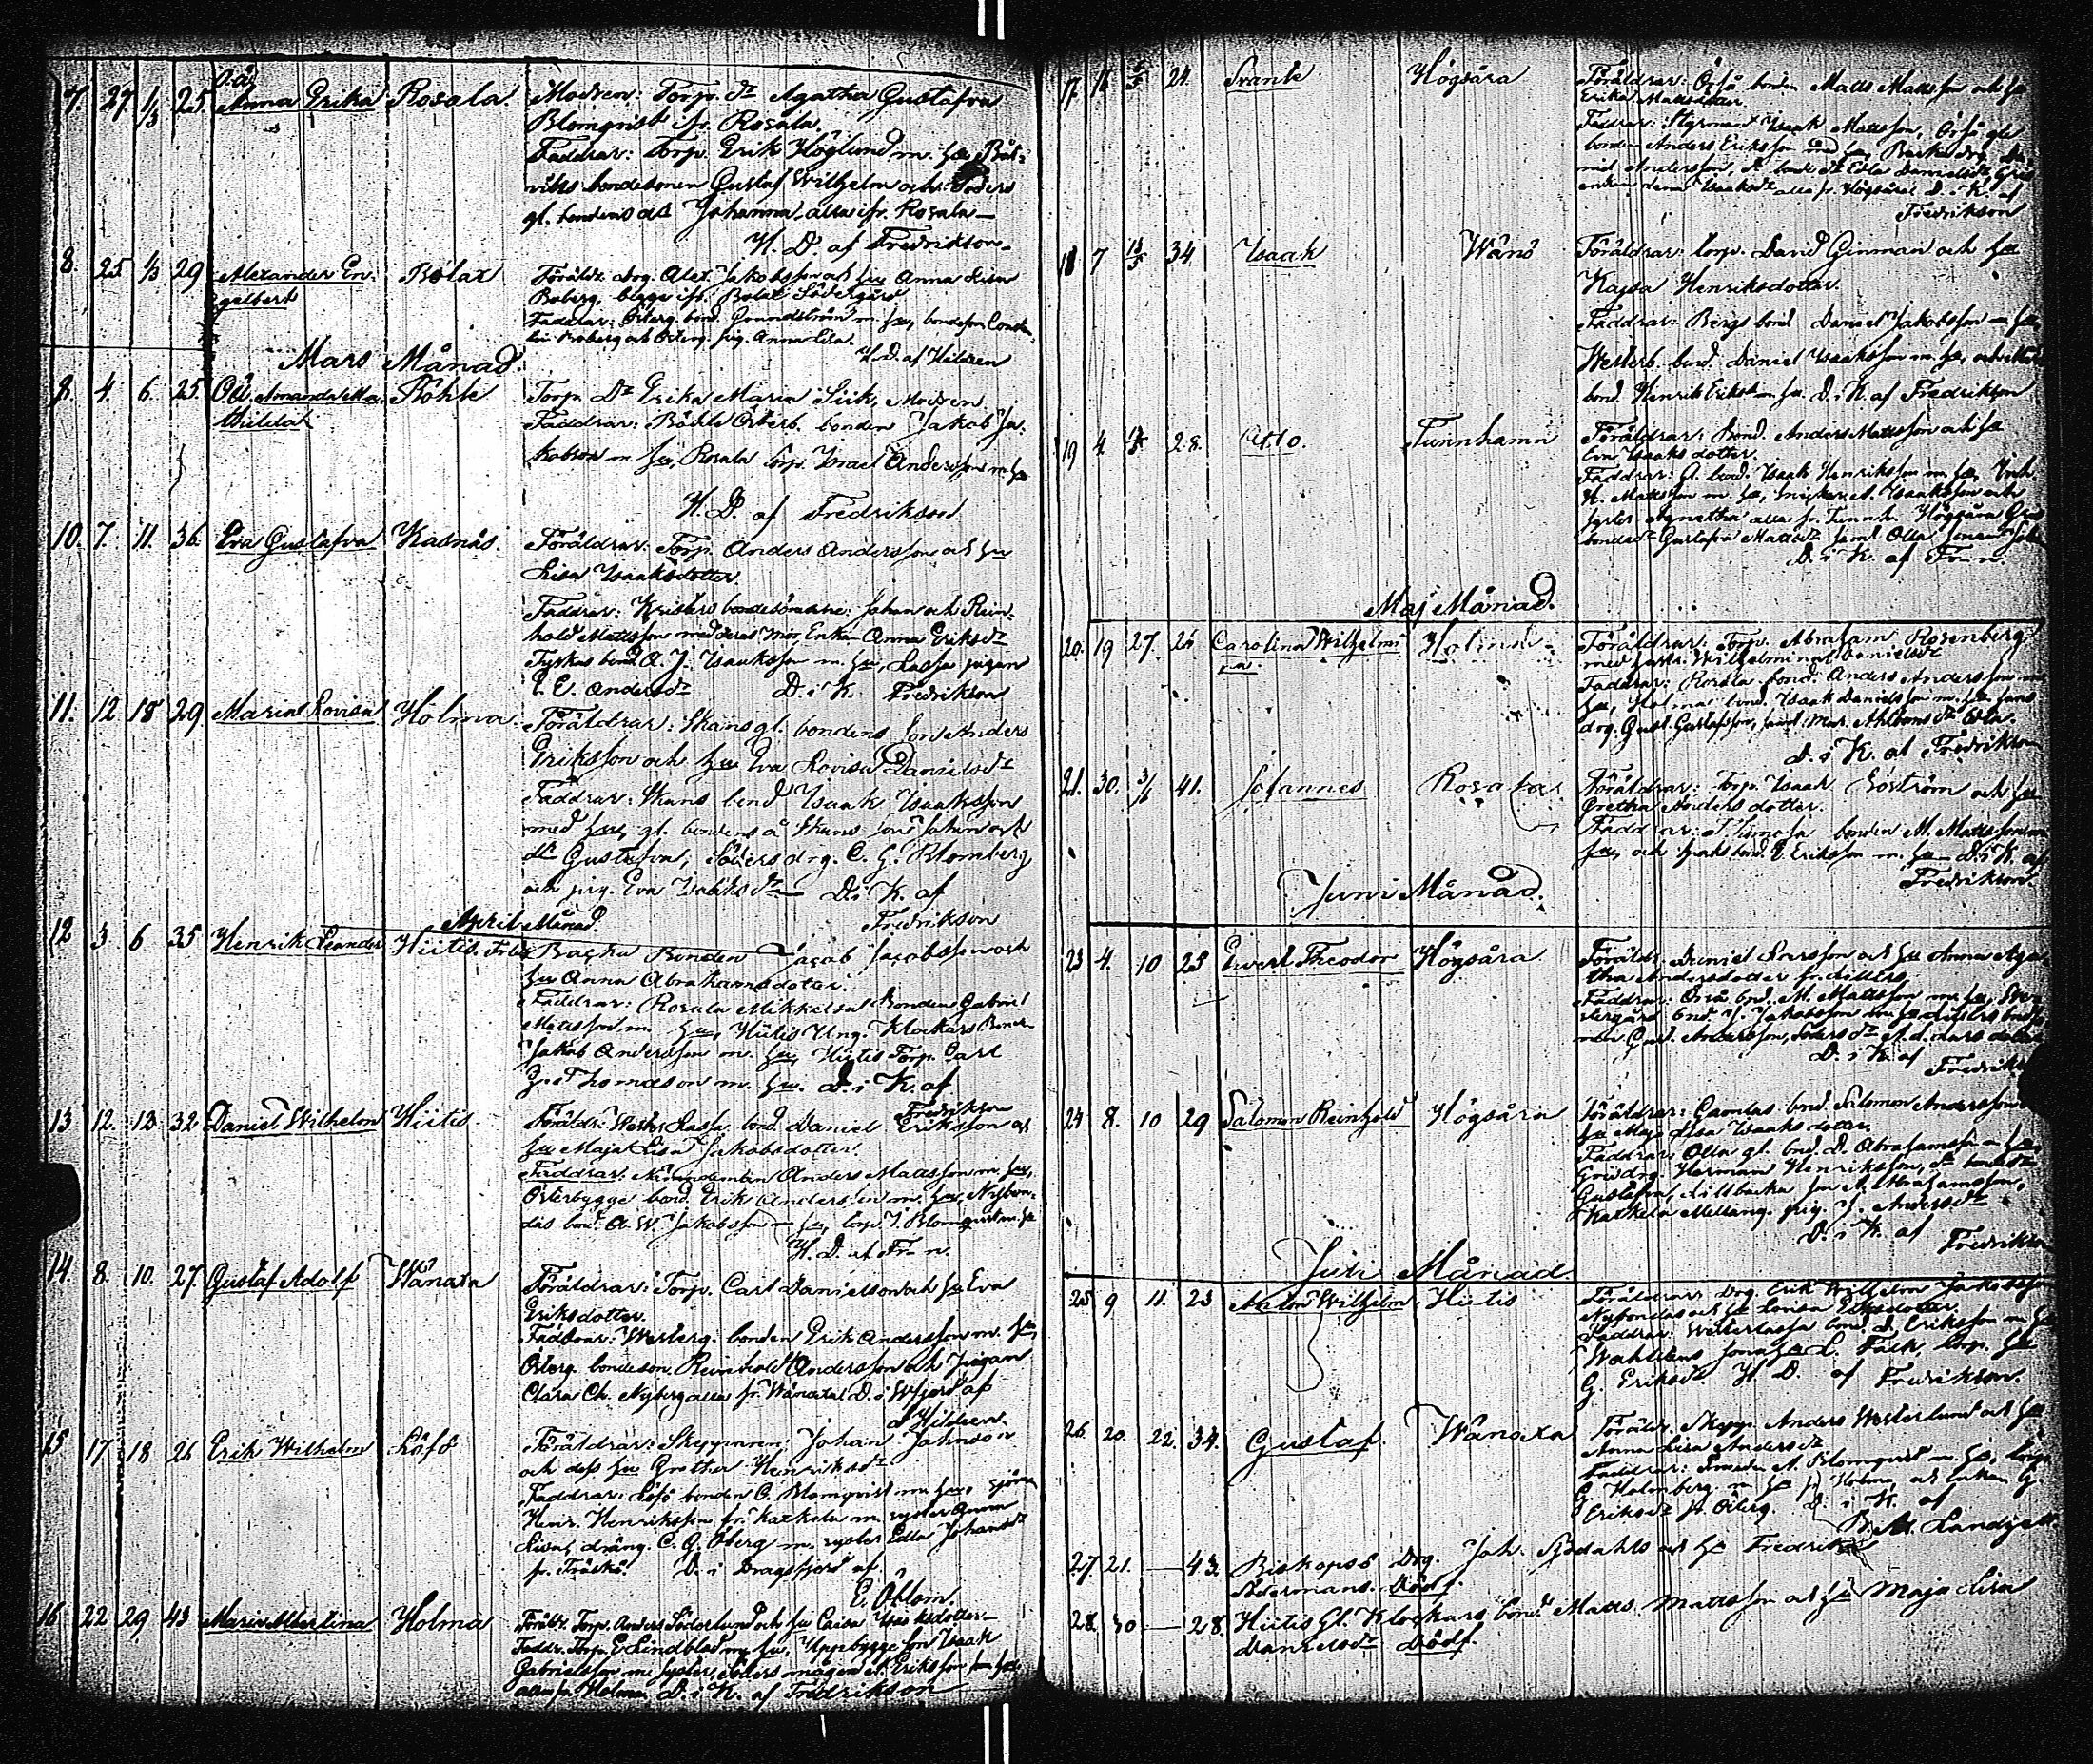 O.ä.
7. 27 1/3 25 Anna Erika Rosala. Modren: Torp. dr Agatha Gustafva
Blomqvist ifr. Rosala.
Faddrar: Torp. Erik Höglund m. hu,
bondesonen Gustaf Wilhelm och Söders
gl. bondens dr Johanna, alla ifr. Rosala—
H. D. af Fredrikson—
8. 25 1/3 29 Alexander En- Bölax Föräldr. drg. Alex. Jakobsson och hu Anna Lisa
gelbert Boberg, begge ifr. Bolax Södergård
Faddrar: Österg. bond. m. hu, bondeson
Boberg och Österg. pig. Anna Lisa.
H. D. af Hildeen
Mars Månad.
8. 4. 6. 25. O.ä. Amanda Ma- Böhle Torp. Dr Erika Maria Siik, Modren
thilda Faddrar: Böhle Österb. bonden Jakob Ja-
kobsson m. hu, Rosala torp. Israel Andersson m. hu
H. D. af Fredrikson
10. 7. 11. 36. Eva Gustafva Kasnäs. Föräldrar: Torp. Anders Andersson och hu
Lisa Isaaksdotter.
Faddrar: Kristers bondesönerne: Johan och Rein-
hold Mattsson med deras mor Enkan Anna Eriksdr
Tyskas bond. A. J. Isaaksson m. hu, Lassas pigan
E. E. Andersdr D. i K. Fredrikson
11. 12 18 29. Maria Lovisa Holma. Föräldrar: Skans gl. bondens son Anders
Eriksson och hu Eva Lovisa Danielsdr
Faddrar: Skans bond Isaak Isaaksson
med hu, gl. bondens å Skans son Johan och
dr Gustafva, Söders drg. C. G. Blomberg
och pig. Eva Isaksdr— D. i K. af
Fredrikson
April Månad.
12 3. 6 35 Henrik Leander Hiitis. Föräl. Backa Bonden Jacob Jacobsson och
hu Anna Abrahamsdoter.
Faddrar: Rosala Mikkelsa Bonden Gabriel
Matsson m. hu, Hiitis Yng. Klockars Bonden
Jakob Andersson m. hu, Hiitis Torp. Carl
Thomason m. hu. D. i K. af
Fredrikson
13 12. 13 32 Daniel Wilhelm Hiitis. Föräldr. Westerlassa bond. Daniel Eriksson och
hu Maja Lisa Jakobsdotter.
Faddrar: Nämndeman Anders Mattsson m. hu,
Österbygge bond. Erik Andersson m. hu, Nybon-
das bond. A. W. Jakobsson m. hu, torp. J. Blomqvist m. hu
H. D. af Fr–n.
14. 8. 10. 27. Gustaf Adolf Wänoxa Föräldrar: Torp. Carl Danielson och hu Eva
Eriksdotter.
Faddrar: Westerg. bonden Erik Andersson m. hu,
Österg. bondeson Reinhold Andersson och Pigan
Clara Ch. Nyberg alla fr. Wänoxa. D. i Wfjerd af
Hildeen.
15 17 18 26 Erik Wilhelm Löfö Föräldrar: Skepparen Johan Johnson
och dess hu Gretha Henriksdr
Faddrar: Löfö bonden O. Blomqvist m. hu,
Henr. Henriksson fr. Karksla m. syster Anna
Lisa, dräng. C. G. Öberg m. syster Edla Johansdr
fr. Träskö. D. i Dragsfjerd af
E. Öblom.
16 22 29 43 Maria Albertina Holma Föräldr. Torp. Anders Söderlund och hu Caisa Isaksdotter—
Faddr. Torp. E. Lindblad m. hu, Uppbygge son Isaak
Gabrielsson m. syster, Söders mågen A. Eriksson m. hu
alla fr. Holma. D. i K. af Fredrikson
17. 16 2/5 24. Frank Högsåra Föräldrar: Örså bonden Matts Mattsson och hu
Erika Mattsdotter.
Faddrar: Styrmand Isaak Mattsson, Örså gl.
bonden Anders Eriksson med hu, Backa drg.
Andersson, dr bond. dr Edla Danielsdr
enkan Isaaksdr alla fr. Högsåra. D. i K. af
Fredrikson
18 7 13/5 34. Isaak Wänö Föräldrar: torp. David Ginman och hu
Kajsa Henriksdotter.
Faddrar: Bergs bond Daniel Jakobsson m. hu,
Westerb. bond. Daniel Isaaksson m. hu,
bond. Henrik Eriksson m. hu. D. i K. af Fredrikson
19 4. 13/5 28. Otto. Tunnhamn Föräldrar: Bond. Anders Mattsson och hu
Eva Isaaksdotter.
Faddrar: Gl. bond. Isaak Henriksson m. hu,
K. Mattsson m. hu, Isaaksson och
syster Agnetha alla fr. Tunnh. Högsåra
bondedr Gustafva Mattsdr samt Olla
D. i K. af Fr–n.
Maj Månad.
20. 19 27. 26 Carolina Wilhelmi- Holma. Föräldrar: Torp. Abraham Rosenberg
na. med hustr. Wilhelmina Danielsdr
Faddrar: Rosala bond. Anders Andersson m.
hu, Holma bond. Isaak Danielsson m. hu
drg. Gust. Gustafsson, samt Mar. Ahlbomsdr
D. i K. af Fredrikson
21. 30. 3/6 41. Johannes Rosala Föräldrar: Torp. Isaak Sjöström och hu
Gretha Andersdotter.
Faddrar: Thomasa bonden M. Mattsson m.
hu, och bond. E. Eriksson m. hu— D. i K. af
Fredrikson.
Juni Månad.
23 4. 10 25 Evert Theodor Högsåra Föräldr. Daniel Larsson och hu Anna Aga-
tha Andersdotter fr.
Faddrar: Örså bnd. M. Mattsson m. hu,
bnd. J. Jakobsson m. hu
Gust. Andersson,
D. i K. af
Fredrikson
24 8. 10 29 Salomon Reinhold Högsåra Föräldrar: Gamlas bnd. Salomon Andersson
hu Maja Lisa Isaaksdotter.
Faddrar: Olla gl. bnd. D. Abrahamsson m. hu,
drg. Herman Henriksson, dr bondedr
Gustafva, Lillbacka son A. Abrahamsson,
Karksla Mellang. pig. J. Andersdr
D. i K. af Fredrikson
Juli Månad.
25 9 11. 23 Anton Wilhelm Hiitis Föräldrar: Drg. Erik Wilhelm Jakobsson
Nybondas och hu Lovisa Eriksdotter.
Faddrar: Westerlassa bond. D. Eriksson m. hu
Wahldens L. Falk, torp. hu
G. Eriksdr H. D. af Fredrikson.
26 20. 22. 34. Gustaf. Wänoxa Föräldr. Skepp. Anders Westerlund och hu
Anna Lisa Andersdr
Faddrar: Smeden A. Blomqvist m. hu, torp.
G. Holmberg m. hu fr. Holma, och enkan G.
Eriksdr fr. Österg. D. i K. af
B. M. Landgrett
27 21. — 43. Biskopsö Drg. Joh. Sjödahls och hu Fredrika
Södermans. Dödf.
28. 30 — 28. Hiitis Gl. Klockars bond. Matts Mattsson och hu Maja Lisa
Danielsdr Dödf.